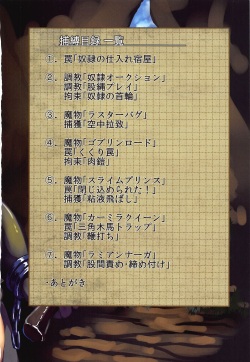 捕縛目録一覧
①．罠「奴隷の仕入れ宿屋」
②．調教「奴隷オークション」
調教「股縄プレイ」
拘束「奴隷の首輪」
③．魔物「ラスターバグ」
捕獲「空中拉致」
④．魔物「ゴブリンロード」
罠「くくり罠」
拘束「肉鎧」
⑤．魔物「スライムプリンス」
罠「閉じ込められた！」
捕獲「粘液飛ばし」
⑥．魔物「カーミラクイーン」
罠「三角木馬トラップ」
調教「鞭打ち」
⑦．魔物「ラミアンナーガ」
調教「股間責め・締め付け」
・あとがき